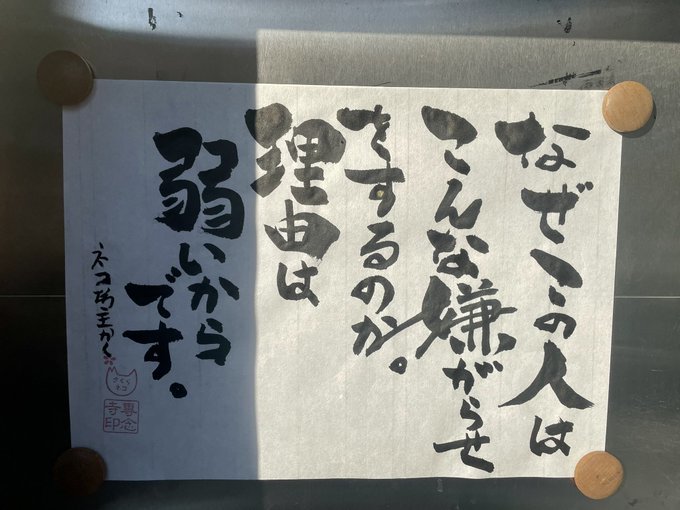 なぜこの人は
こんな嫌がらせ
をするのか。
理由は
弱いから
です。
ネコ坊主かく
さくらネコ
専念寺印